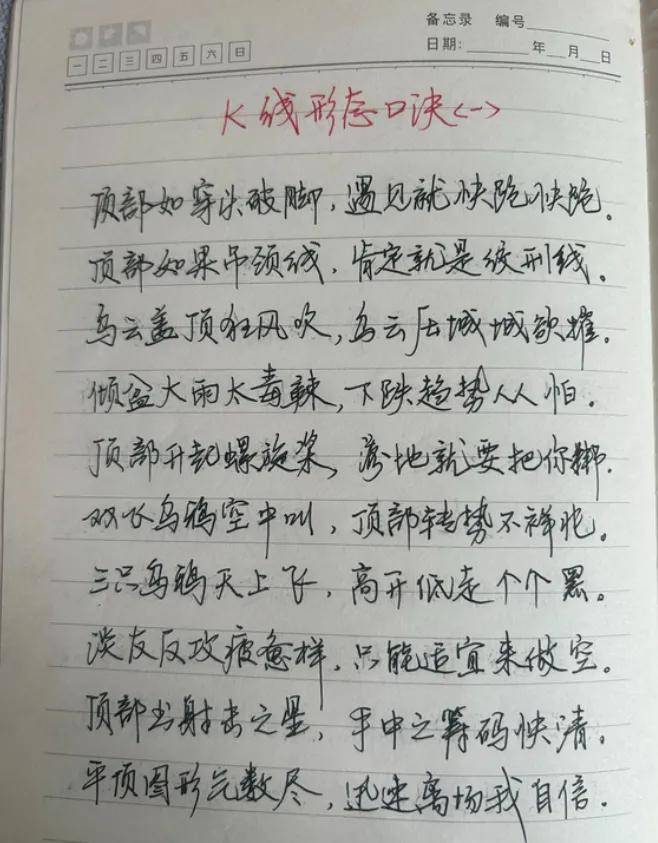 备忘录 编号
一 二 三 四 五 六 日
日期: 年 月 日
K线形态口诀<一>
顶部如穿头破脚,遇见就快跑快跑。
顶部如果吊颈线,肯定就是绞刑线。
乌云盖顶狂风吹,乌云压城城欲摧。
倾盆大雨太毒辣,下跌趋势人人怕。
顶部升起螺旋桨,落地就要把你绑.
双飞乌鸦空中叫,顶部转势不祥兆。
三只乌鸦天上飞,高开低走个个黑。
淡友反攻疲惫样,只能适宜来做空。
顶部出射击之星,手中之筹码快清。
平顶图形气数尽,迅速离场我自信.